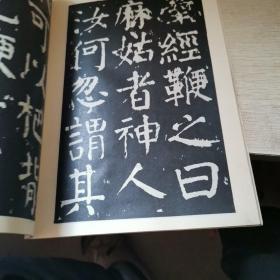 蠡經鞭之曰
麻姑者神人
汝何忽謂其
可以爬背